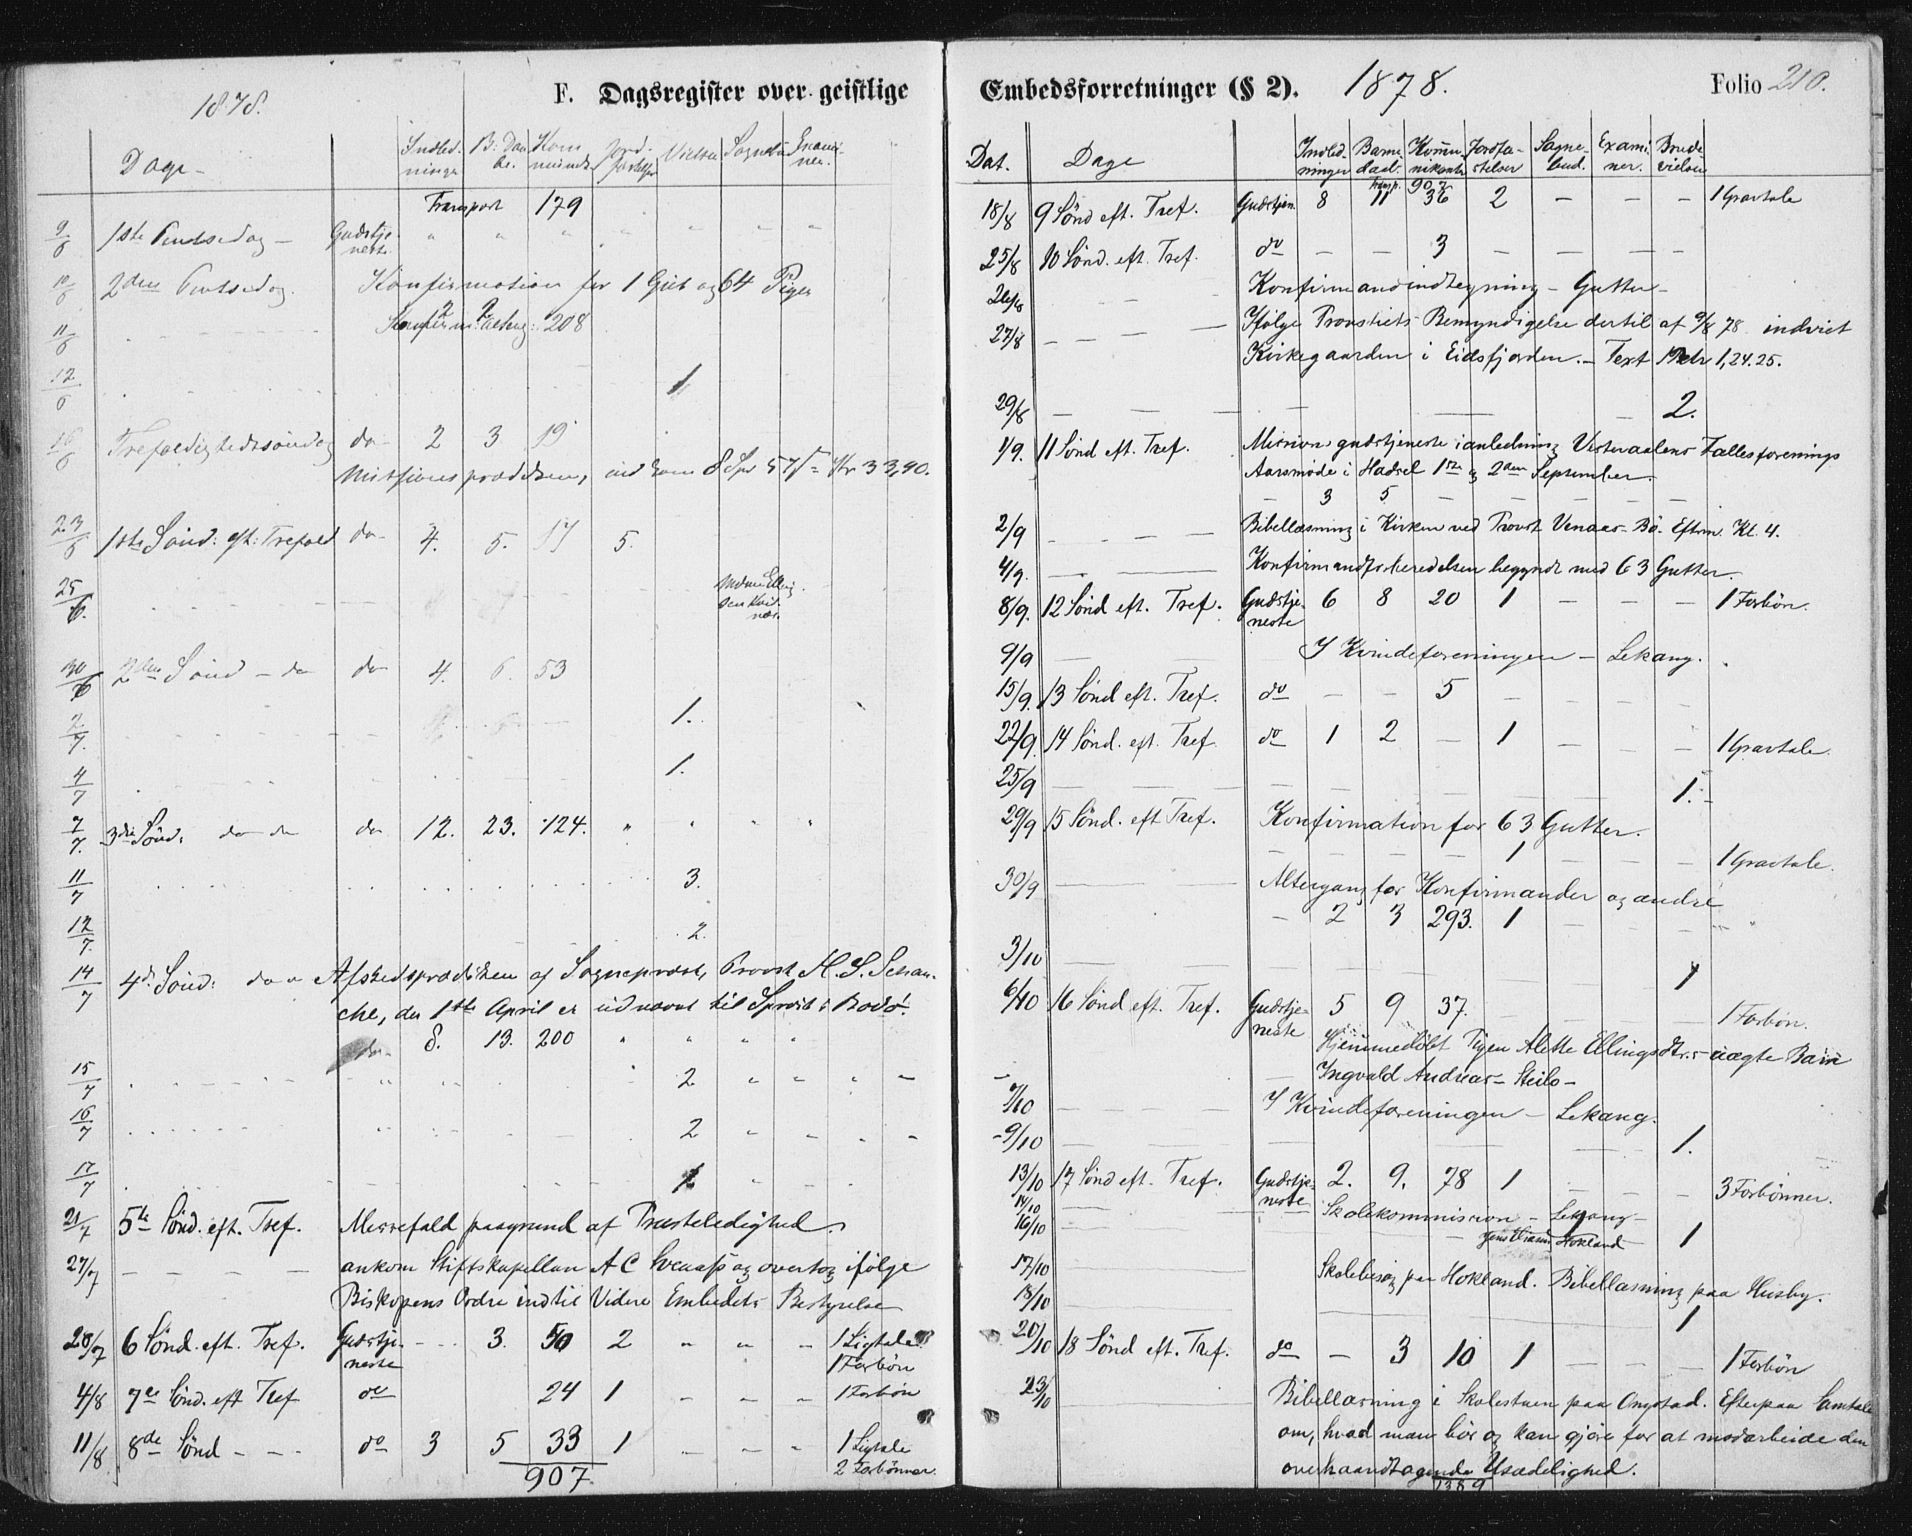 1878.
F. Dagsregister over geistlige
Dage
Indled-
ninger
Kom
munik
Vielser
Sognebud
Exami
ner.
Transport 179
9/6 1ste Pintsedag - Gudstje
neste
10/6 2den Pintsedag. Konfirmation for 1 Gut og 64 Piger
11/6 208
12/6 1
16/6 Trefoldighedssöndag do 2 3 19
Missionsprædiken, indkom 8 Spd 57 ß = Kr 33,90.
23/6 1ste Sönd: eft: Trefold do 4. 5. 17 5.
25/6.
30/6 2den Sönd - do do 4. 6. 53
2/7. 1.
4/7 1.
7/7. 3die Sönd: do do do 12. 23. 124.
11/7 3.
12/7. 2.
14/7 4de Sönd: do Afskedsprædiken af Sognepræst, Provst H. S. Schan-
che, der 1ste April er udnævnt til Spræst i Bodö.
do 8. 13. 200
15/7 2
16/7 2
17/7 1
21/7 5te Sönd. eft. Tref. Messefald paagrund af Præsteledighed.
27/7 ankom Stiftskapellan A C Svenass og overtog ifölge
Biskopens Ordre indtil Videre Embedets Bestyrelse
28/7 6 Sönd. eft. Tref. Gudstje- 3. 50 2 1 Ligtale
neste 1 Forbön
4/8 7de Sönd. eft Tref do 24 1 1 Forbön
11/8 8de Sönd - - - do 3 5 33 1 1 Ligtale
907 2 Forbönner.
Embedsforretninger (§ 2). 1878. Folio 210.
Dat. Dage Indled- Barne Kommu- Jordfæ- Sogne- Exami- Brude
ninger daab. nikanter stelser bud. ner. vielser
Transp. 907
18/8 9 Sönd eft. Tref. Gudstjen. 8 11 36 2 - - - 1 Gravtale
25/8 10 Sönd. eft. Tref. do - - 3 - - -
26/8 - - - Konfirmandindtegning - Gutter -
27/8 - - - Ifölge Provstiets Bemyndigelse dertil af 9/8 78 indviet
Kirkegaarden i Eidsfjorden. - Text 1 Petr 1,24.25.
29/8 2.
1/9. 11 Sönd eft. Tref. Missionsgudstjeneste i anledning Vesteraalens Fællesforenings
Aarsmöde i Hadsel 1ste og 2den September.
- 3 5 - - - - -
2/9 - - - - Bibellæsning i Kirken ved Provst Venaas - Bö. Efterm. Kl. 4.
4/9. Konfirmandforberedelsen begyndt med 63 Gutter.
8/9. 12 Sönd eft. Tref. Gudstje- 6 8 20 1 - - - 1 Forbön.
neste
9/9 I Kvindeforeningen - Lekang.
15/9. 13 Sönd eft. Tref. do - - 5 -
22/9. 14 Sönd. eft. Tref. do 1 2 - 1 - - - 1 Gravtale.
25/9 1.
29/9 15 Sönd. eft Tref. Konfirmation for 63 Gutter.
1 - - - 1 Gravtale.
30/9 Altergang for Konfirmander og andre
- 2 3 293. 1
3/10 1
6/10 16 Sönd eft. Tref. Gudstje- 5 9 37. 1 Forbön.
neste Hjemmedöbt Pigen Alette Ellingsdtr.s uægte Barn
Ingvald Andreas - Steilo -
7/10 I Kvindeforeningen - Lekang.
9/10 1.
13/10 17 Sönd eft. Tref. Gudstje- 2. 9. 78 1 - - - 3 Forbönner.
neste
14/10 Skolekommission - Lekang -
16/10 Hokland 1
17/10 Skolebesög paa Hokland. Bibellæsning paa Husby.
18/10 1
20/10 18 Sönd eft. Tref. do - 3 10 1 - - - 1 Forbön
23/10 Bibellæsning i Skolestuen paa Ongstad. Efterpaa Samtale
om, hvad man bör og kan gjöre for at modarbeide den
overhaandtagende Usædelighed.
1389